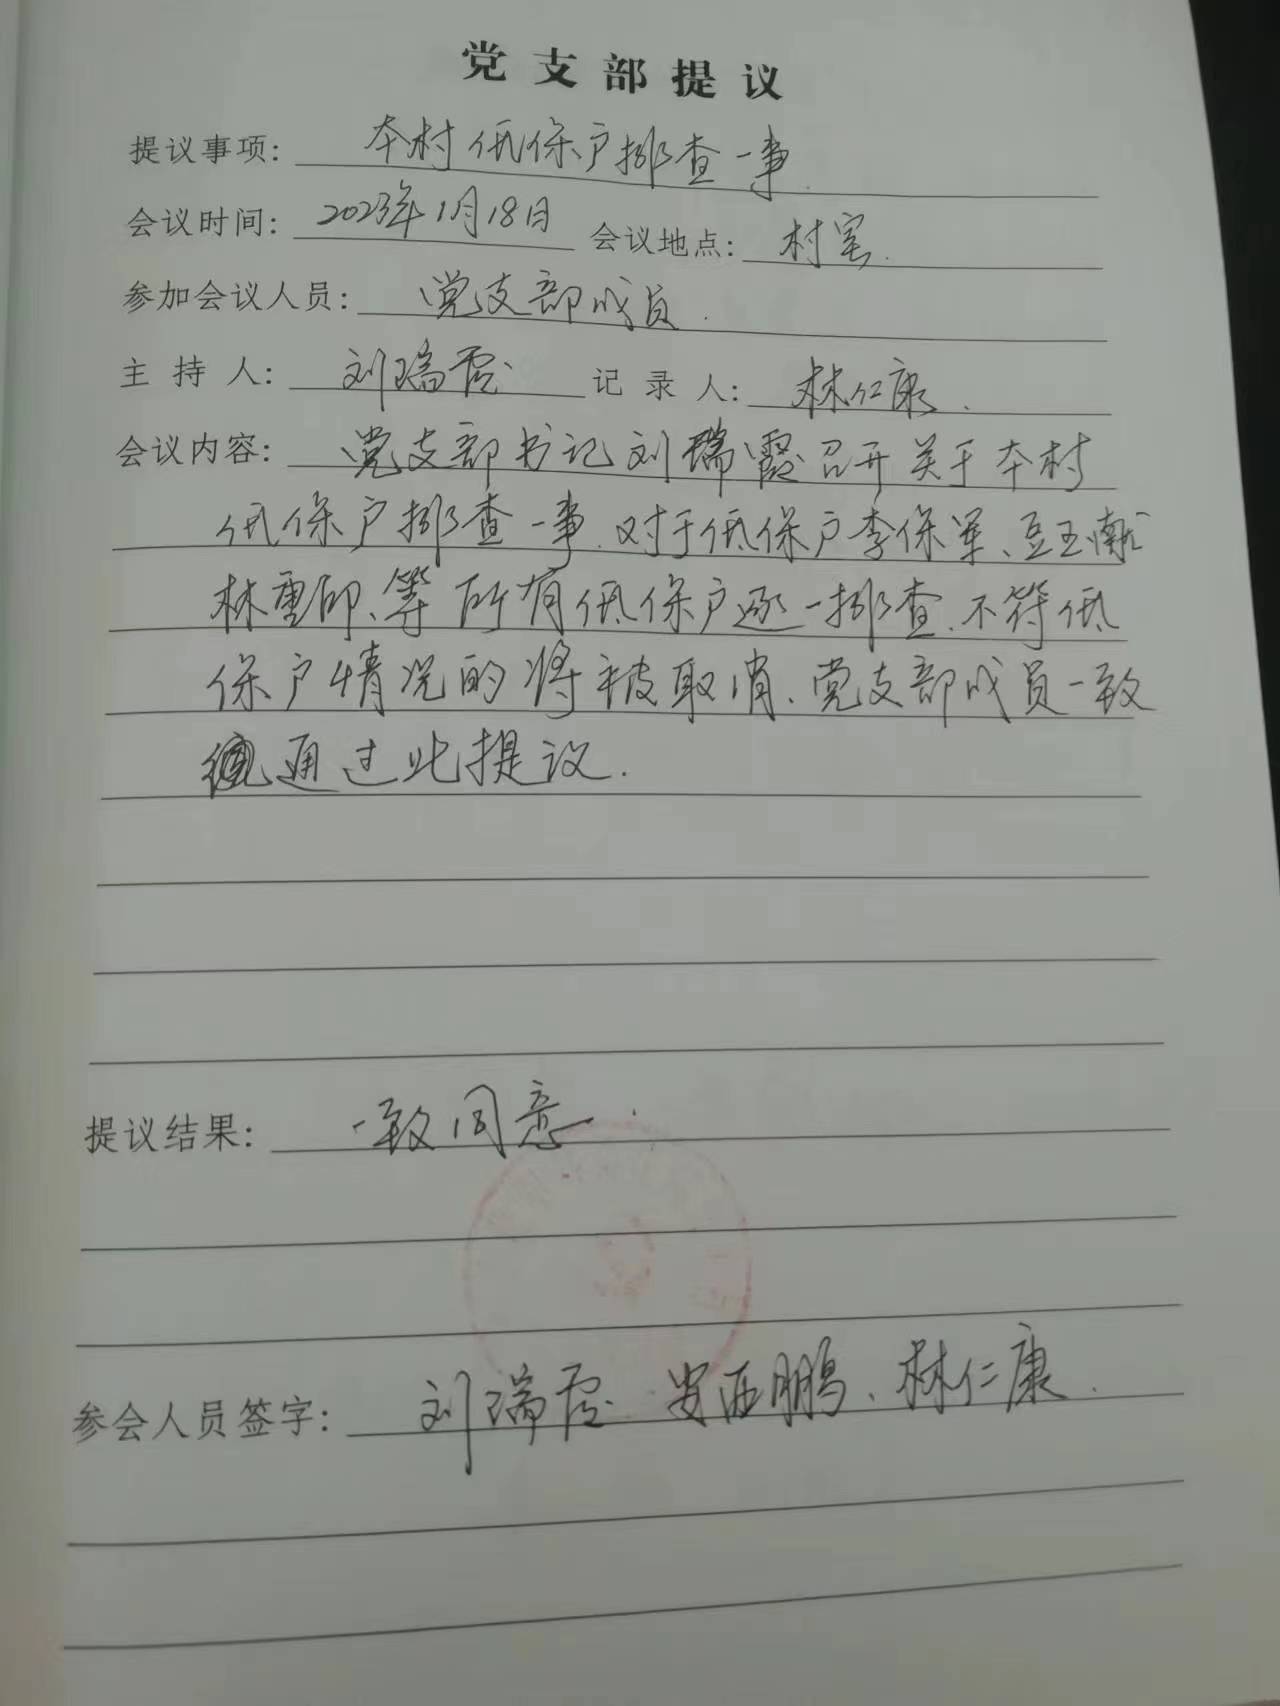 党支部提议
提议事项: 本村低保户排查一事.
会议时间: 2023年1月18日 会议地点: 村室.
参加会议人员: 党支部成员.
主持人: 刘瑞霞 记录人: 林仁康.
会议内容: 党支部书记刘瑞霞召开关于本村
低保户排查一事.对于低保户李保军、豆玉
林重印、等所有低保户逐一排查.不符低
保户情况的将被取消、党支部成员一致
通过此提议.
提议结果: 一致同意.
参会人员签字: 刘瑞霞. 亚鹏、林仁康.